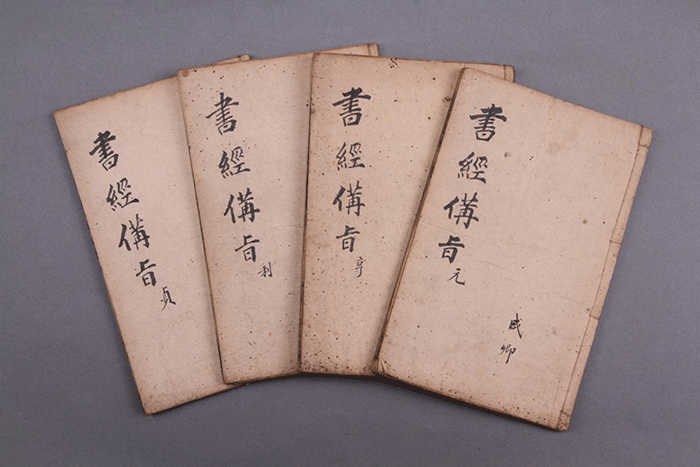 書經備旨元
咸卿
書經備旨亨
書經備旨利
書經備旨貞